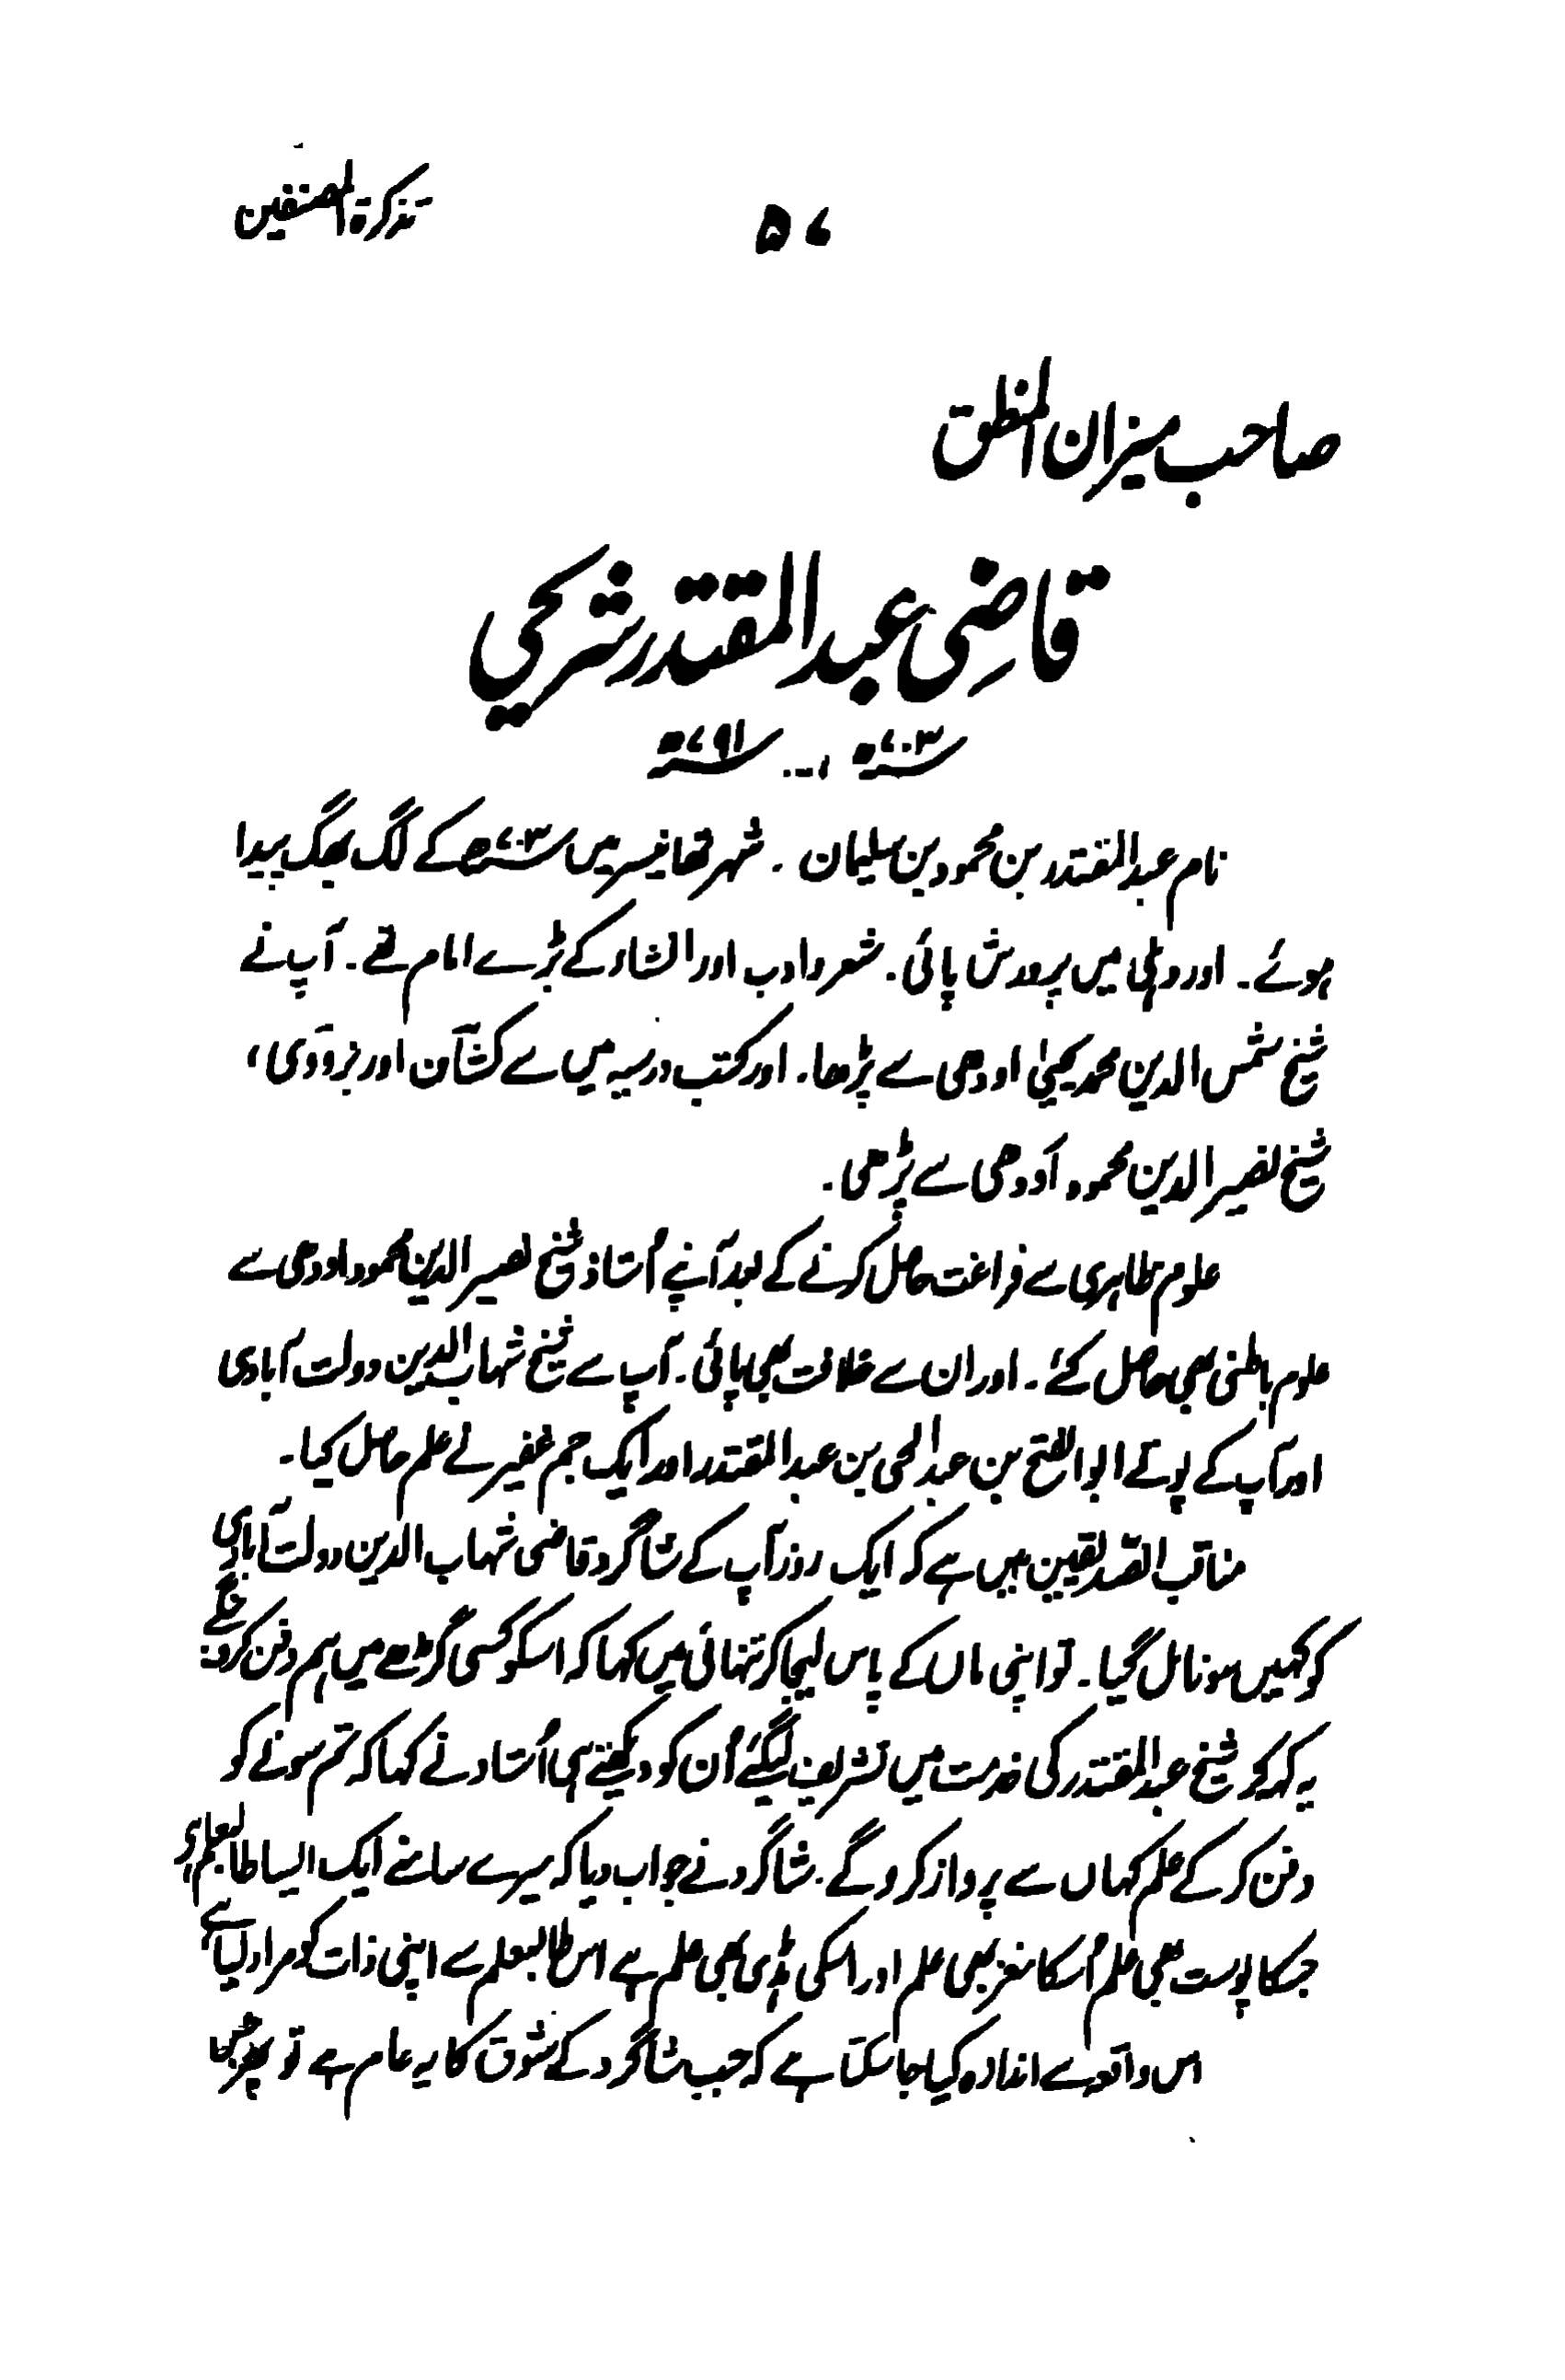 تذکرۃ المصنفین
۵۷
صاحب میزان المنطق
قاضی عبدالمقتدر شریحی
سنہ ۷۰۳ھ ... سنہ ۷۹۱ھ
نام عبدالمقتدر بن محمود بن سلیمان ۔ شہر تھانیسر میں سنہ ۷۰۳ھ کے لگ بھگ پیدا
ہوئے ۔ اور دہلی میں پرورش پائی ۔ شعر و ادب اور انشاء کے بڑے امام تھے ۔ آپ نے
شیخ شمس الدین محمد یحییٰ اودھی سے پڑھا ۔ اور کتب درسیہ میں سے کشاف اور بزدوی ،
شیخ نصیر الدین محمود اودھی سے پڑھی ۔
علوم ظاہری سے فراغت حاصل کرنے کے بعد آپنے اُستاذ شیخ نصیر الدین محمود اودھی سے
علوم باطنی بھی حاصل کئے ۔ اور ان سے خلافت بھی پائی ۔ آپ سے شیخ شہاب الدین دولت آبادی
اور آپ کے پوتے ابوالفتح بن عبدالحی بن عبدالمقتدر اور ایک جم غفیر نے علم حاصل کیا ۔
مناقب الصدیقین میں ہے کہ ایک روز آپ کے شاگرد قاضی شہاب الدین دولت آبادی
کو کہیں سونا مل گیا ۔ تو اپنی ماں کے پاس لیجا کر تنہائی میں کہا کہ اسکو کسی گڑھے میں ہم دفن کردینگے
یہ کہہ کر شیخ عبدالمقتدر کی خدمت میں تشریف لیگئے اُن کو دیکھتے ہی اُستاد نے کہا کہ تم سونے کو
دفن کر کے علم کہاں سے پرواز کرو گے ۔ شاگرد نے جواب دیا کہ میرے سامنے ایک ایسا طالبعلم ہے
جسکا پوست بھی علم اُسکا مغز بھی علم اور اسکی ہڈی بھی علم ہے اس طالبعلم سے اپنی ذات کو مراد لیا ہے
اس واقعہ سے اندازہ کیا جا سکتا ہے کہ جب شاگرد کے شوق کا یہ عالم ہے تو پھر جس